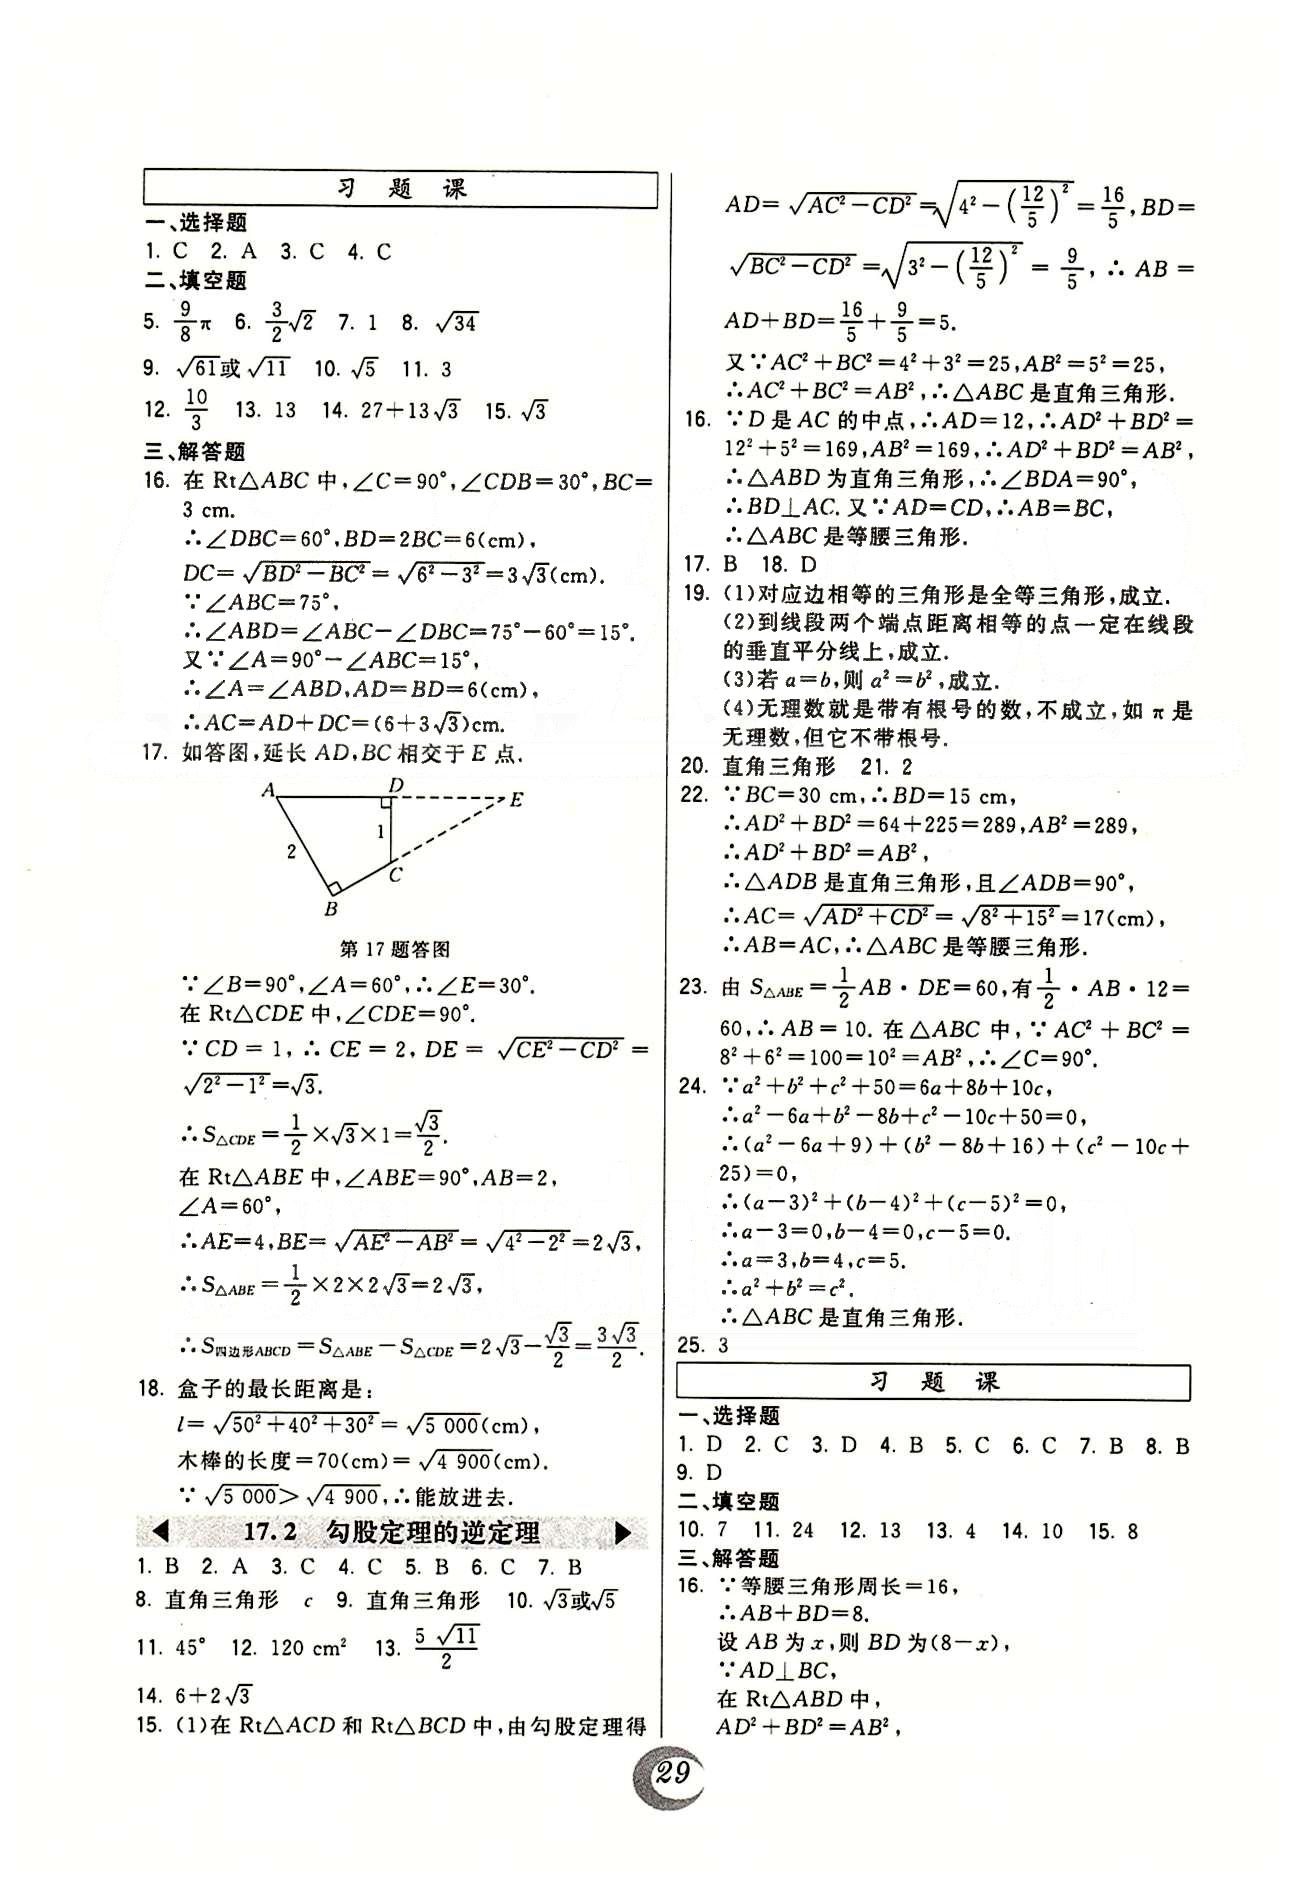 习 题 课
一、选择题
1. C 2. A 3. C 4. C
二、填空题
5. 9/8 π 6. 3/2 √2 7. 1 8. √34
9. √61或√11 10. √5 11. 3
12. 10/3 13. 13 14. 27+13√3 15. √3
三、解答题
16. 在 Rt△ABC 中,∠C=90°,∠CDB=30°,BC=
3 cm.
∴∠DBC=60°,BD=2BC=6(cm),
DC=√(BD²-BC²)=√(6²-3²)=3√3(cm).
∵∠ABC=75°,
∴∠ABD=∠ABC-∠DBC=75°-60°=15°.
又∵∠A=90°-∠ABC=15°,
∴∠A=∠ABD,AD=BD=6(cm),
∴AC=AD+DC=(6+3√3)cm.
17. 如答图,延长 AD,BC 相交于 E 点.
A D E
1
2
C
B
第 17 题答图
∵∠B=90°,∠A=60°,∴∠E=30°.
在 Rt△CDE 中,∠CDE=90°.
∵CD=1,∴CE=2,DE=√(CE²-CD²)=
√(2²-1²)=√3.
∴S△CDE=1/2×√3×1=√3/2.
在 Rt△ABE 中,∠ABE=90°,AB=2,
∠A=60°,
∴AE=4,BE=√(AE²-AB²)=√(4²-2²)=2√3,
∴S△ABE=1/2×2×2√3=2√3,
∴S四边形ABCD=S△ABE-S△CDE=2√3-√3/2=3√3/2.
18. 盒子的最长距离是:
l=√(50²+40²+30²)=√5 000(cm),
木棒的长度=70(cm)=√4 900(cm).
∵√5 000>√4 900,∴能放进去.
17.2 勾股定理的逆定理
1. B 2. A 3. C 4. C 5. B 6. C 7. B
8. 直角三角形 c 9. 直角三角形 10. √3或√5
11. 45° 12. 120 cm² 13. 5√11/2
14. 6+2√3
15. (1)在 Rt△ACD 和 Rt△BCD 中,由勾股定理得
AD=√(AC²-CD²)=√(4²-(12/5)²)=16/5,BD=
√(BC²-CD²)=√(3²-(12/5)²)=9/5,∴AB=
AD+BD=16/5+9/5=5.
又∵AC²+BC²=4²+3²=25,AB²=5²=25,
∴AC²+BC²=AB²,∴△ABC 是直角三角形.
16. ∵D 是 AC 的中点,∴AD=12,∴AD²+BD²=
12²+5²=169,AB²=169,∴AD²+BD²=AB²,
∴△ABD 为直角三角形,∴∠BDA=90°,
∴BD⊥AC.又∵AD=CD,∴AB=BC,
∴△ABC 是等腰三角形.
17. B 18. D
19. (1)对应边相等的三角形是全等三角形,成立.
(2)到线段两个端点距离相等的点一定在线段
的垂直平分线上,成立.
(3)若 a=b,则 a²=b²,成立.
(4)无理数就是带有根号的数,不成立,如 π 是
无理数,但它不带根号.
20. 直角三角形 21. 2
22. ∵BC=30 cm,∴BD=15 cm,
∴AD²+BD²=64+225=289,AB²=289,
∴AD²+BD²=AB²,
∴△ADB 是直角三角形,且∠ADB=90°,
∴AC=√(AD²+CD²)=√(8²+15²)=17(cm),
∴AB=AC,∴△ABC 是等腰三角形.
23. 由 S△ABE=1/2 AB·DE=60,有1/2·AB·12=
60,∴AB=10.在△ABC 中,∵AC²+BC²=
8²+6²=100=10²=AB²,∴∠C=90°.
24. ∵a²+b²+c²+50=6a+8b+10c,
∴a²-6a+b²-8b+c²-10c+50=0,
∴(a²-6a+9)+(b²-8b+16)+(c²-10c+
25)=0,
∴(a-3)²+(b-4)²+(c-5)²=0,
∴a-3=0,b-4=0,c-5=0.
∴a=3,b=4,c=5.
∴a²+b²=c².
∴△ABC 是直角三角形.
25. 3
习 题 课
一、选择题
1. D 2. C 3. D 4. B 5. C 6. C 7. B 8. B
9. D
二、填空题
10. 7 11. 24 12. 13 13. 4 14. 10 15. 8
三、解答题
16. ∵等腰三角形周长=16,
∴AB+BD=8.
设 AB 为 x,则 BD 为(8-x),
∵AD⊥BC,
在 Rt△ABD 中,
AD²+BD²=AB²,
29